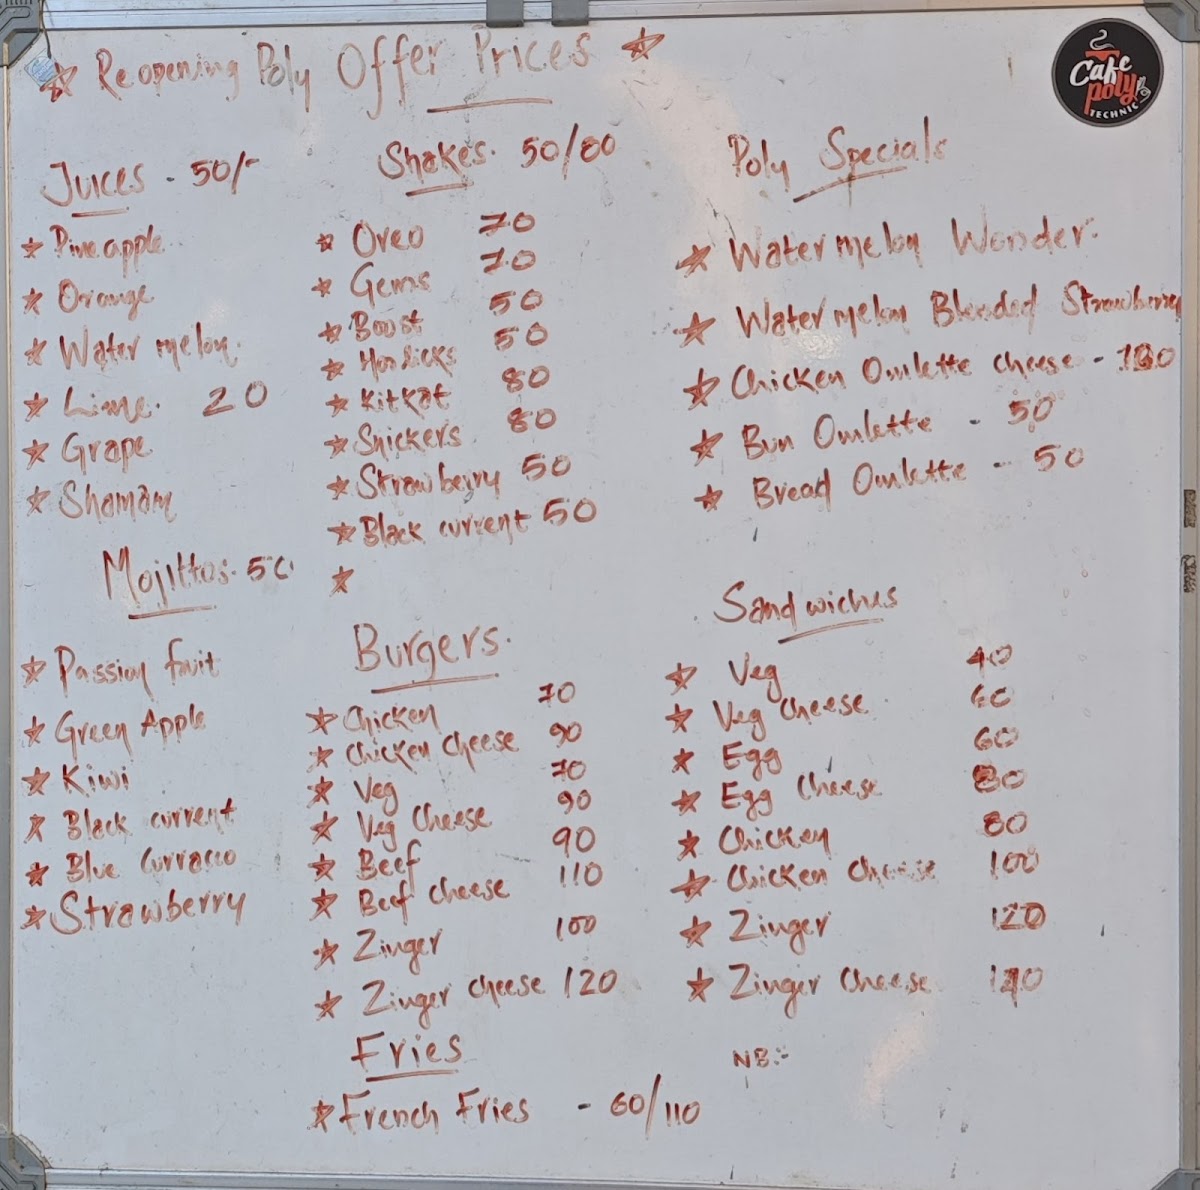 Reopening Poly Offer Prices
Cafe
Poly
TECHNIC
Juices - 50/-
Pineapple
Orange
Water melon.
Lime. 20
Grape
Shamam
Mojittos. 50
Passion fruit
Green Apple
Kiwi
Black current
Blue Curraco
Strawberry
Shakes. 50/80
Oreo 70
Gems 70
Boost 50
Horlicks 50
Kitkat 80
Snickers 80
Strawberry 50
Black current 50
Burgers.
Chicken 70
Chicken Cheese 90
Veg 70
Veg Cheese 90
Beef 90
Beef Cheese 110
Zinger 100
Zinger cheese 120
Fries
French Fries - 60/110
Poly Specials
Water melon Wonder.
Water melon Blended Strawberry
Chicken Omlette cheese -
Bun Omlette - 50
Bread Omlette - 50
Sandwiches
Veg 40
Veg cheese 60
Egg 60
Egg Cheese 80
Chicken 80
Chicken Cheese 100
Zinger 120
Zinger Cheese 140
NB:-